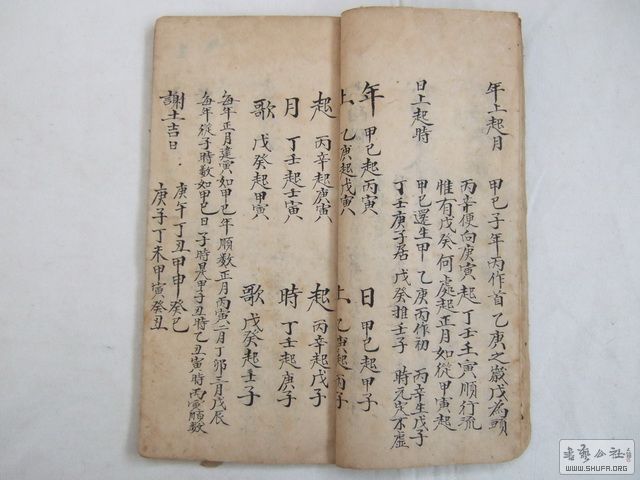 年上起月
甲己子年丙作首 乙庚之歲戊為頭
丙辛便向庚寅起 丁壬壬寅順行流
惟有戊癸何處起 正月如從甲寅起
日上起時
甲己還生甲 乙庚丙作初 丙辛生戊子
丁壬庚子居 戊癸推壬子 時元定不虛
年 甲己起丙寅 日 甲己起甲子
上 乙庚起戊寅 上 乙庚起丙子
起 丙辛起庚寅 起 丙辛起戊子
月 丁壬起壬寅 時 丁壬起庚子
歌 戊癸起甲寅 歌 戊癸起壬子
每年正月建寅如甲己年順數正月丙寅二月丁卯三月戊辰
每年從子時数如甲己日子時是甲子丑時乙丑寅時丙寅順数
謝土吉日
庚午丁丑甲申癸巳
庚子丁未甲寅癸丑
書藝公社
WWW.SHUFA.ORG